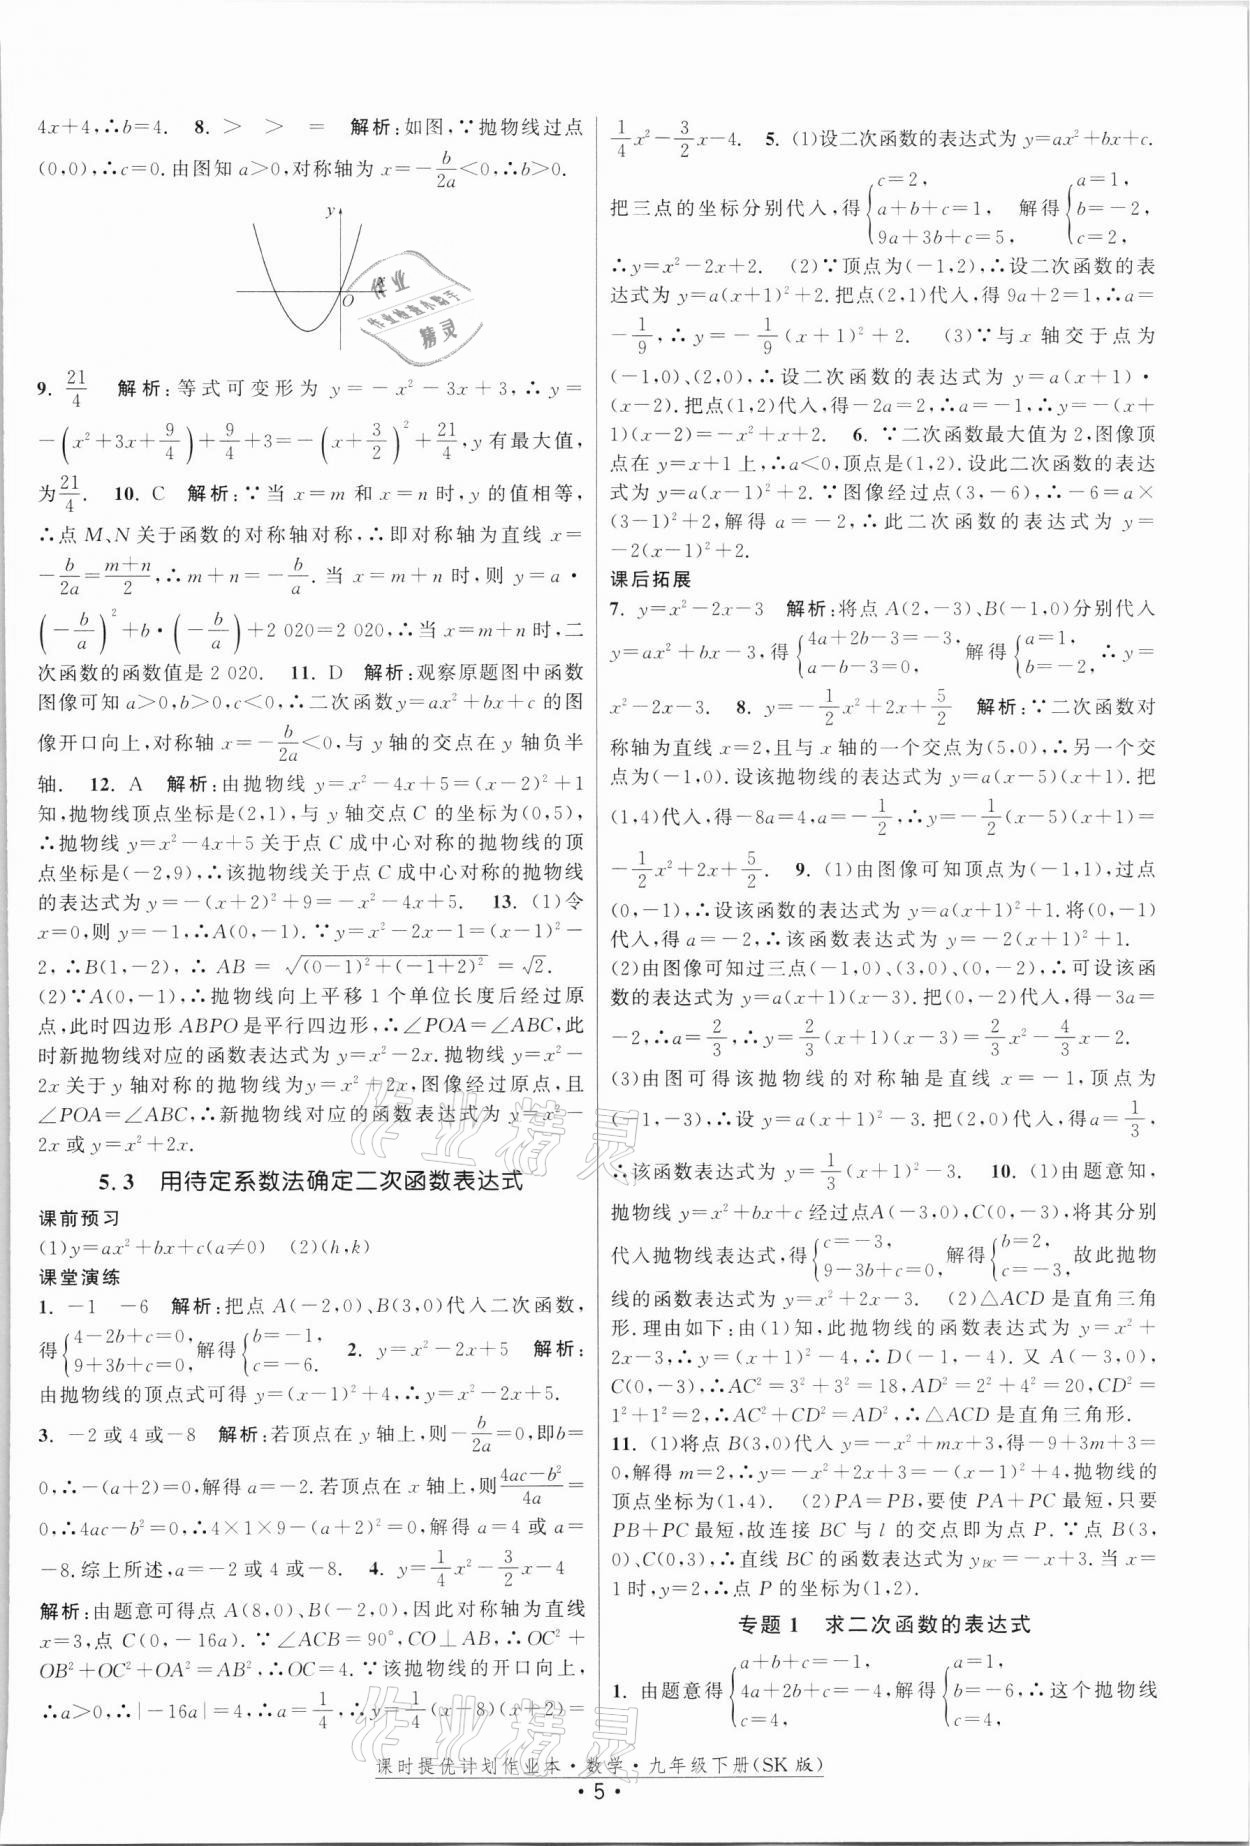 4x+4,∴b=4. 8. > > = 解析:如图,∵抛物线过点
(0,0),∴c=0.由图知 a>0,对称轴为 x=-b/2a<0,∴b>0.
y
O
作业
作业检查小助手
精灵
9. 21/4 解析:等式可变形为 y=-x²-3x+3,∴y=
-(x²+3x+9/4)+9/4+3=-(x+3/2)²+21/4,y有最大值,
为21/4. 10. C 解析:∵当 x=m 和 x=n 时,y 的值相等,
∴点 M、N 关于函数的对称轴对称,∴即对称轴为直线 x=
-b/2a=(m+n)/2,∴m+n=-b/a.当 x=m+n 时,则 y=a·
(-b/a)²+b·(-b/a)+2 020=2 020,∴当 x=m+n时,二
次函数的函数值是 2 020. 11. D 解析:观察原题图中函数
图像可知 a>0,b>0,c<0,∴二次函数y=ax²+bx+c 的图
像开口向上,对称轴 x=-b/2a<0,与 y 轴的交点在 y 轴负半
轴. 12. A 解析:由抛物线 y=x²-4x+5=(x-2)²+1
知,抛物线顶点坐标是(2,1),与 y 轴交点 C 的坐标为(0,5),
∴抛物线 y=x²-4x+5 关于点 C 成中心对称的抛物线的顶
点坐标是(-2,9),∴该抛物线关于点 C 成中心对称的抛物线
的表达式为 y=-(x+2)²+9=-x²-4x+5. 13. (1)令
x=0,则 y=-1,∴A(0,-1).∵y=x²-2x-1=(x-1)²-
2,∴B(1,-2),∴ AB = √((0-1)²+(-1+2)²) = √2.
(2)∵A(0,-1),∴抛物线向上平移 1 个单位长度后经过原
点,此时四边形 ABPO 是平行四边形,∴∠POA=∠ABC,此
时新抛物线对应的函数表达式为 y=x²-2x.抛物线 y=x²-
2x 关于 y 轴对称的抛物线为y=x²+2x,图像经过原点,且
∠POA=∠ABC,∴新抛物线对应的函数表达式为 y=x²-
2x 或 y=x²+2x.
5.3 用待定系数法确定二次函数表达式
课前预习
(1)y=ax²+bx+c(a≠0) (2)(h,k)
课堂演练
1. -1 -6 解析:把点 A(-2,0)、B(3,0)代入二次函数,
得{4-2b+c=0, 9+3b+c=0,解得{b=-1, c=-6. 2. y=x²-2x+5 解析:
由抛物线的顶点式可得 y=(x-1)²+4,∴y=x²-2x+5.
3. -2 或 4 或-8 解析:若顶点在 y 轴上,则-b/2a=0,即b=
0,∴-(a+2)=0,解得 a=-2.若顶点在 x 轴上,则(4ac-b²)/4a=
0,∴4ac-b²=0,∴4×1×9-(a+2)²=0,解得 a=4 或 a=
-8.综上所述,a=-2 或 4 或-8. 4. y=1/4x²-3/2x-4
解析:由题意可得点 A(8,0)、B(-2,0),因此对称轴为直线
x=3,点 C(0,-16a).∵∠ACB=90°,CO⊥AB,∴OC²+
OB²+OC²+OA²=AB²,∴OC=4.∵该抛物线的开口向上,
∴a>0,∴|-16a|=4,∴a=1/4,∴y=1/4(x-8)(x+2)=
1/4x²-3/2x-4. 5. (1)设二次函数的表达式为 y=ax²+bx+c.
把三点的坐标分别代入,得{c=2, a+b+c=1, 9a+3b+c=5, 解得{a=1, b=-2, c=2,
∴y=x²-2x+2. (2)∵顶点为(-1,2),∴设二次函数的表
达式为 y=a(x+1)²+2.把点(2,1)代入,得 9a+2=1,∴a=
-1/9,∴y=-1/9(x+1)²+2. (3)∵与 x 轴交于点为
(-1,0)、(2,0),∴设二次函数的表达式为 y=a(x+1)·
(x-2).把点(1,2)代入,得-2a=2,∴a=-1,∴y=-(x+
1)(x-2)=-x²+x+2. 6. ∵二次函数最大值为 2,图像顶
点在 y=x+1 上,∴a<0,顶点是(1,2).设此二次函数的表达
式为 y=a(x-1)²+2.∵图像经过点(3,-6),∴-6=a×
(3-1)²+2,解得 a=-2,∴此二次函数的表达式为 y=
-2(x-1)²+2.
课后拓展
7. y=x²-2x-3 解析:将点 A(2,-3)、B(-1,0)分别代入
y=ax²+bx-3,得{4a+2b-3=-3, a-b-3=0, 解得{a=1, b=-2, ∴y=
x²-2x-3. 8. y=-1/2x²+2x+5/2 解析:∵二次函数对
称轴为直线 x=2,且与 x 轴的一个交点为(5,0),∴另一个交
点为(-1,0).设该抛物线的表达式为 y=a(x-5)(x+1).把
(1,4)代入,得-8a=4,a=-1/2,∴y=-1/2(x-5)(x+1)=
-1/2x²+2x+5/2. 9. (1)由图像可知顶点为(-1,1),过点
(0,-1),∴设该函数的表达式为 y=a(x+1)²+1.将(0,-1)
代入,得 a=-2,∴该函数的表达式为 y=-2(x+1)²+1.
(2)由图像可知过三点(-1,0)、(3,0)、(0,-2),∴可设该函
数的表达式为 y=a(x+1)(x-3).把(0,-2)代入,得-3a=
-2,∴a=2/3,∴y=2/3(x+1)(x-3)=2/3x²-4/3x-2.
(3)由图可得该抛物线的对称轴是直线 x=-1,顶点为
(-1,-3),∴设 y=a(x+1)²-3.把(2,0)代入,得a=1/3,
∴该函数表达式为 y=1/3(x+1)²-3. 10. (1)由题意知,
抛物线 y=x²+bx+c 经过点A(-3,0),C(0,-3),将其分别
代入抛物线表达式,得{c=-3, 9-3b+c=0, 解得{b=2, c=-3, 故此抛物
线的函数表达式为 y=x²+2x-3. (2)△ACD 是直角三角
形.理由如下:由(1)知,此抛物线的函数表达式为 y=x²+
2x-3,∴y=(x+1)²-4,∴D(-1,-4).又 A(-3,0),
C(0,-3),∴AC²=3²+3²=18,AD²=2²+4²=20,CD²=
1²+1²=2,∴AC²+CD²=AD²,∴△ACD 是直角三角形.
11. (1)将点 B(3,0)代入 y=-x²+mx+3,得-9+3m+3=
0,解得 m=2,∴y=-x²+2x+3=-(x-1)²+4,抛物线的
顶点坐标为(1,4). (2)PA=PB,要使 PA+PC 最短,只要
PB+PC 最短,故连接 BC 与 l 的交点即为点 P.∵点 B(3,
0)、C(0,3),∴直线 BC 的函数表达式为 y_BC=-x+3.当 x=
1时,y=2,∴点 P 的坐标为(1,2).
专题 1 求二次函数的表达式
1. 由题意得{a+b+c=-1, 4a+2b+c=-4, c=4, 解得{a=1, b=-6, c=4, ∴这个抛物线
作业精灵
作业精灵
课时提优计划作业本·数学·九年级下册(SK 版)
· 5 ·